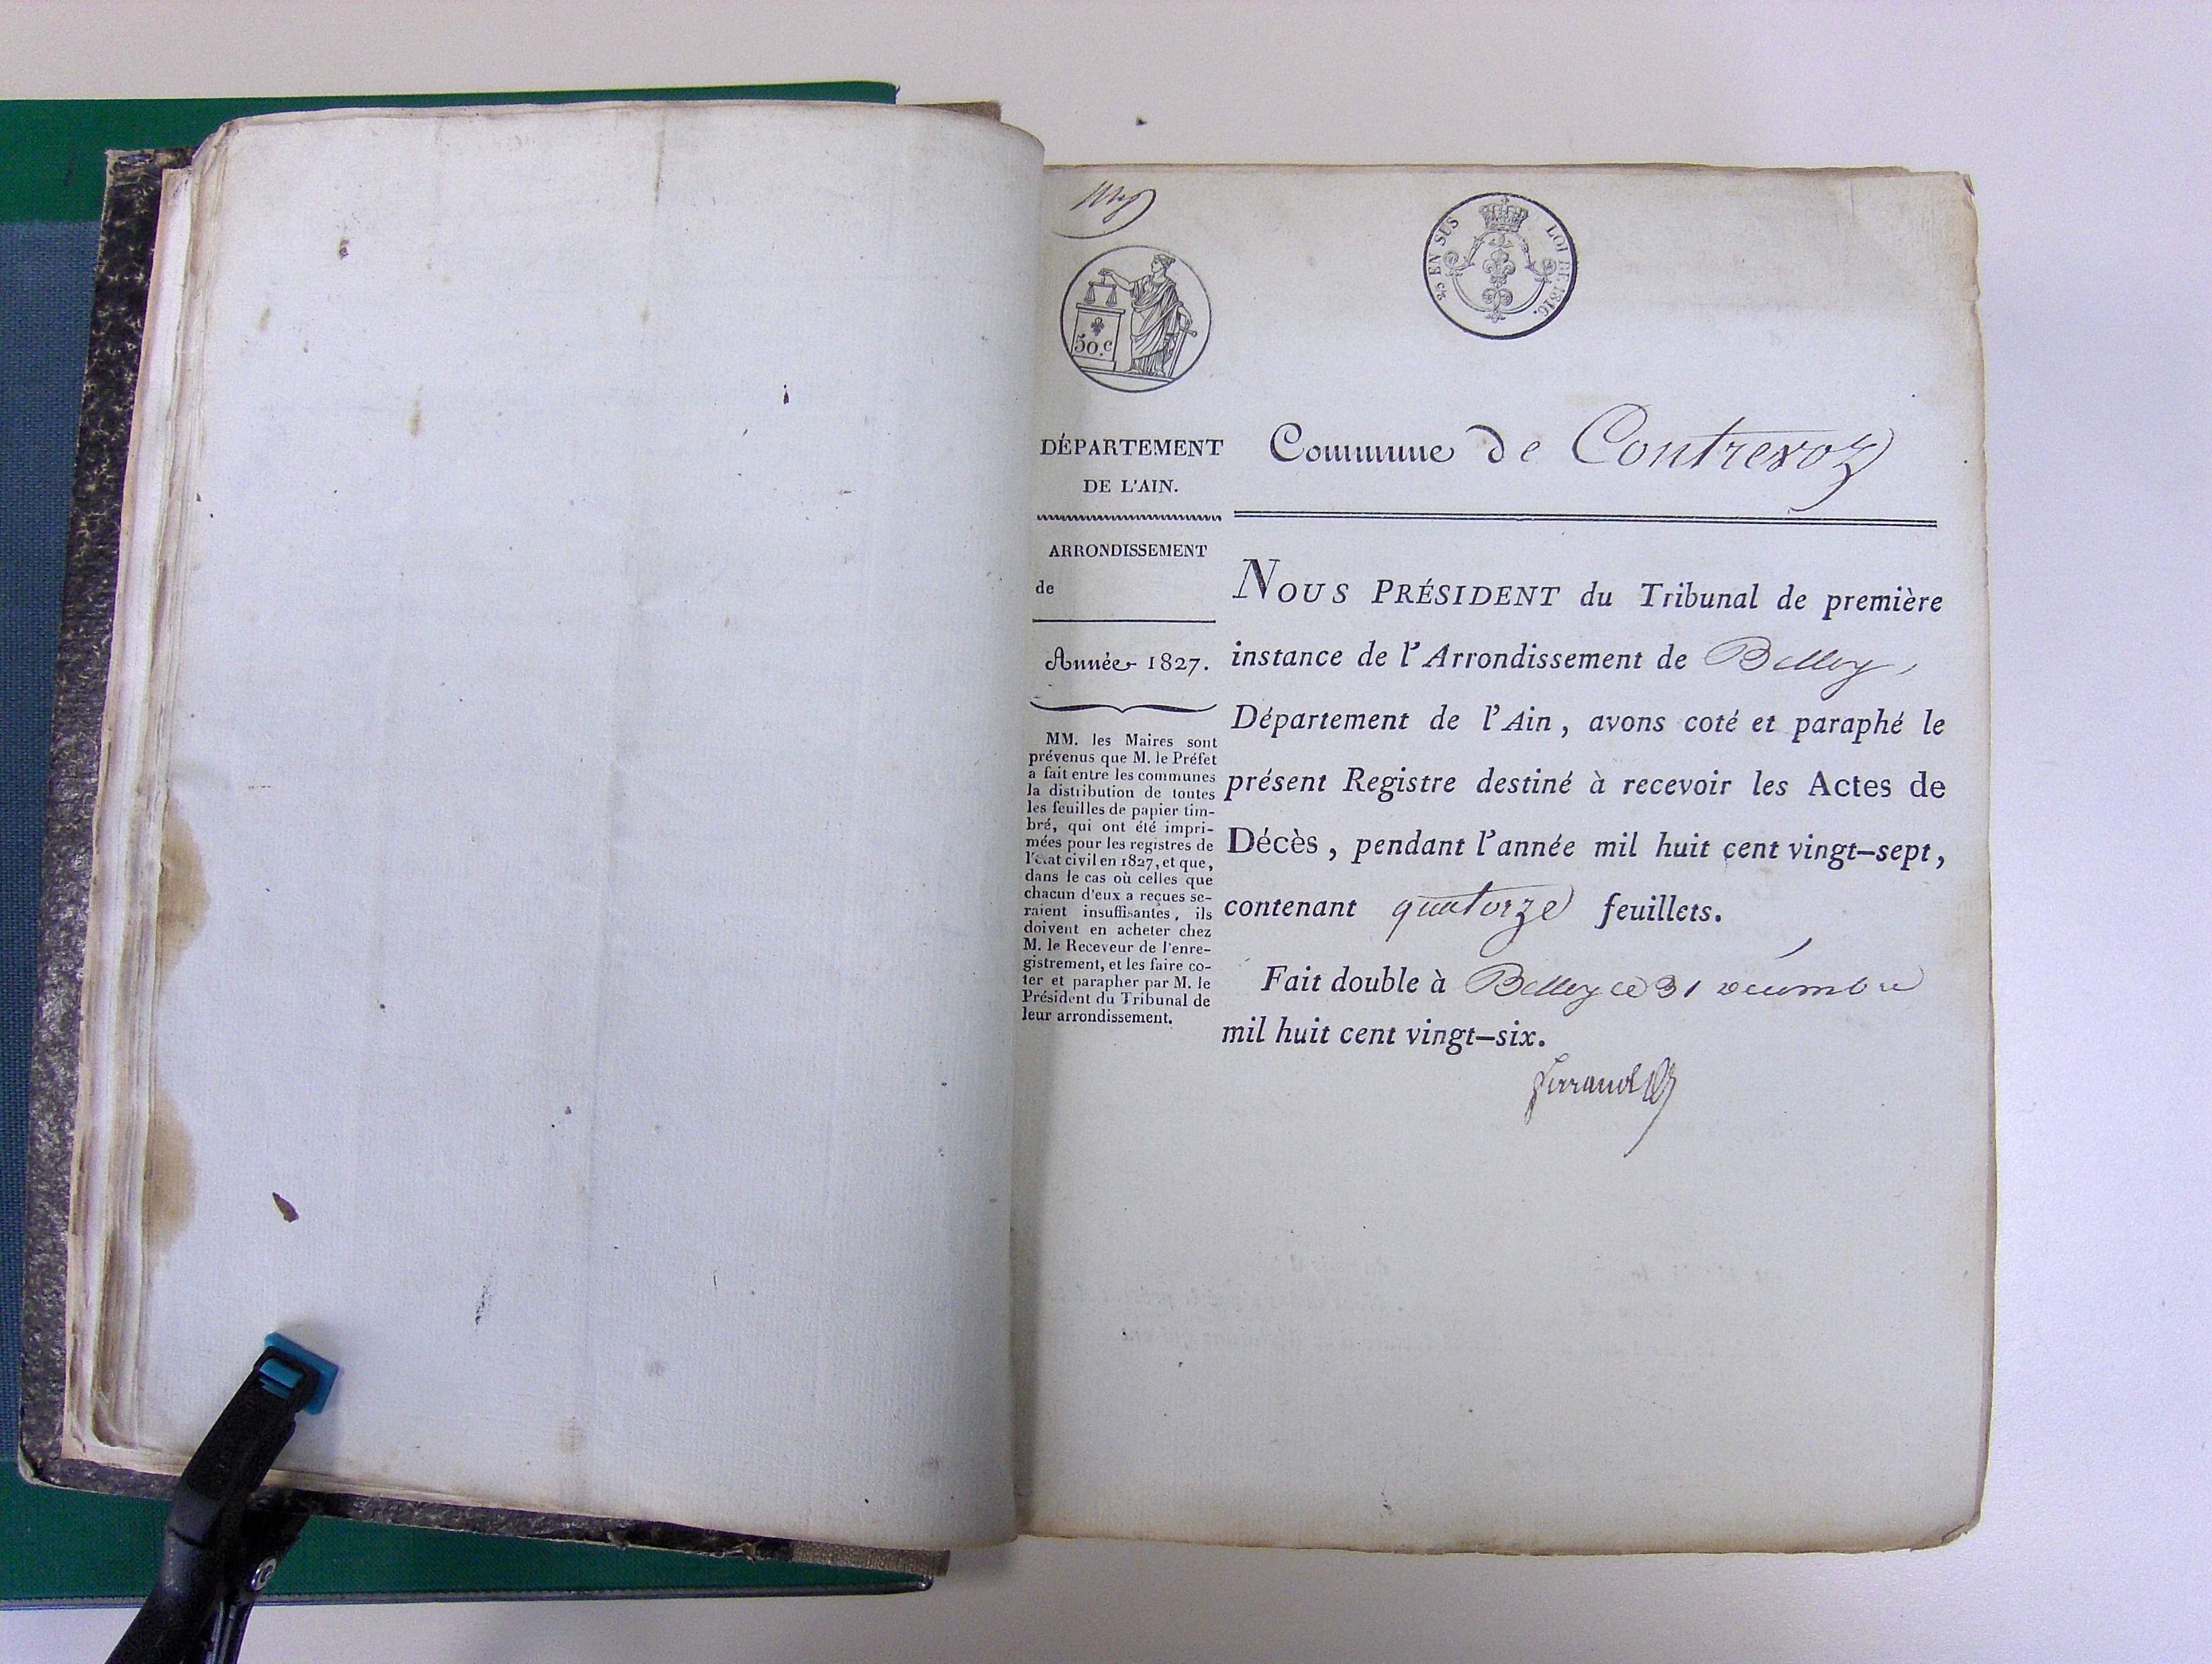 2/5 EN SUS LOI DE 1816.
50.c
DÉPARTEMENT
DE L'AIN.
Commune de Contrevoz
ARRONDISSEMENT
de
Année 1827.
MM. les Maires sont
prévenus que M. le Préfet
a fait entre les communes
la distribution de toutes
les feuilles de papier tim-
bré, qui ont été impri-
mées pour les registres de
l'état civil en 1827, et que,
dans le cas où celles que
chacun d'eux a reçues se-
raient insuffisantes, ils
doivent en acheter chez
M. le Receveur de l'enre-
gistrement, et les faire co-
ter et parapher par M. le
Président du Tribunal de
leur arrondissement.
NOUS PRÉSIDENT du Tribunal de première
instance de l'Arrondissement de Belley,
Département de l'Ain, avons coté et paraphé le
présent Registre destiné à recevoir les Actes de
Décès, pendant l'année mil huit cent vingt-sept,
contenant quatorze feuillets.
Fait double à Belley ce 31 décembre
mil huit cent vingt-six.